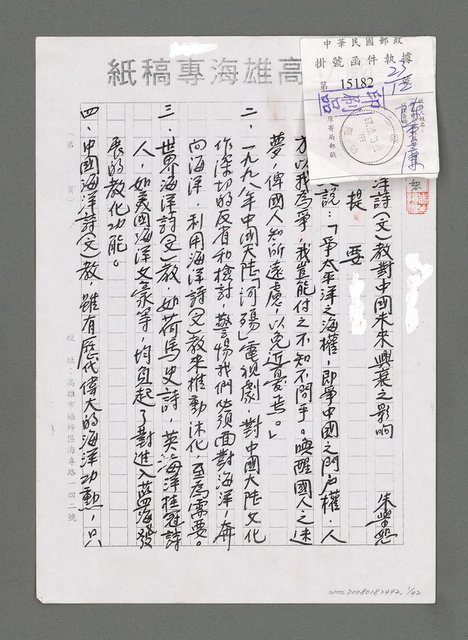 中華民國郵政
掛號函件執據
第 15182 號
高雄海專稿紙
洋詩(文)教對中國未來興衰之影響
朱學恕
提要
說：「爭太平洋之海權，即爭中國之門戶權，人
方以我為爭，我豈能付之不知不問乎。喚醒國人之迷
夢，俾國人知所遠慮，以免近憂焉。」
二、一九八八年中國大陸「河殤」電視劇，對中國大陸文化
作深切的反省和檢討，警惕我們必須面對海洋，奔
向海洋，利用海洋詩(文)教來推動沐化，至為需要。
三、世界海洋詩(文)教，如荷馬史詩，英海洋桂冠詩
人，如美國海洋文豪等，均自起了對進入藍海發
展的教化功能。
四、中國海洋詩(文)教，雖有歷代偉大的海洋功勳，只
校址：高雄市楠梓區海專路一四二號
NML20080182492, 1/42